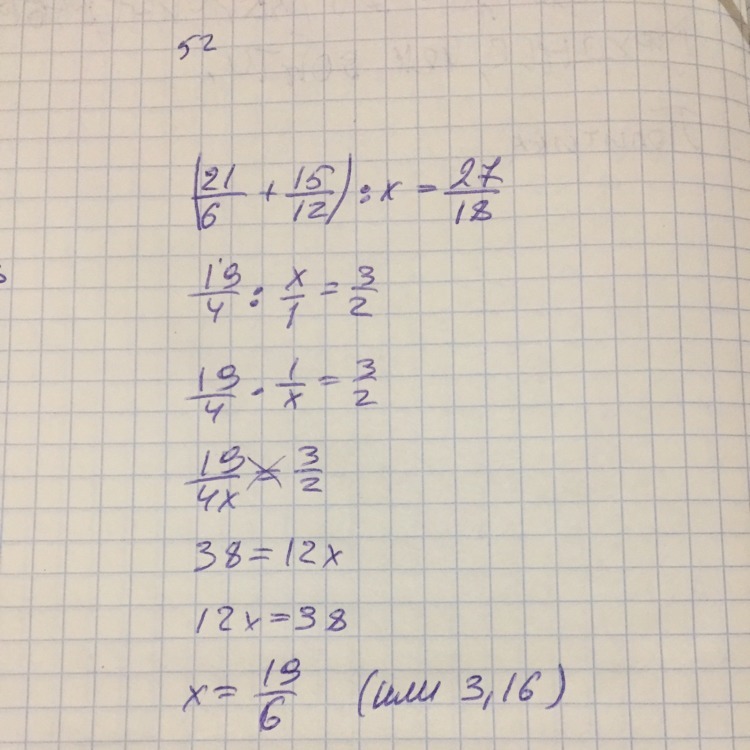 52
(21/6 + 15/12) : x = 27/18
19/4 : x/1 = 3/2
19/4 · 1/x = 3/2
19/4x = 3/2
38 = 12x
12x = 38
x = 19/6 (или 3,16)